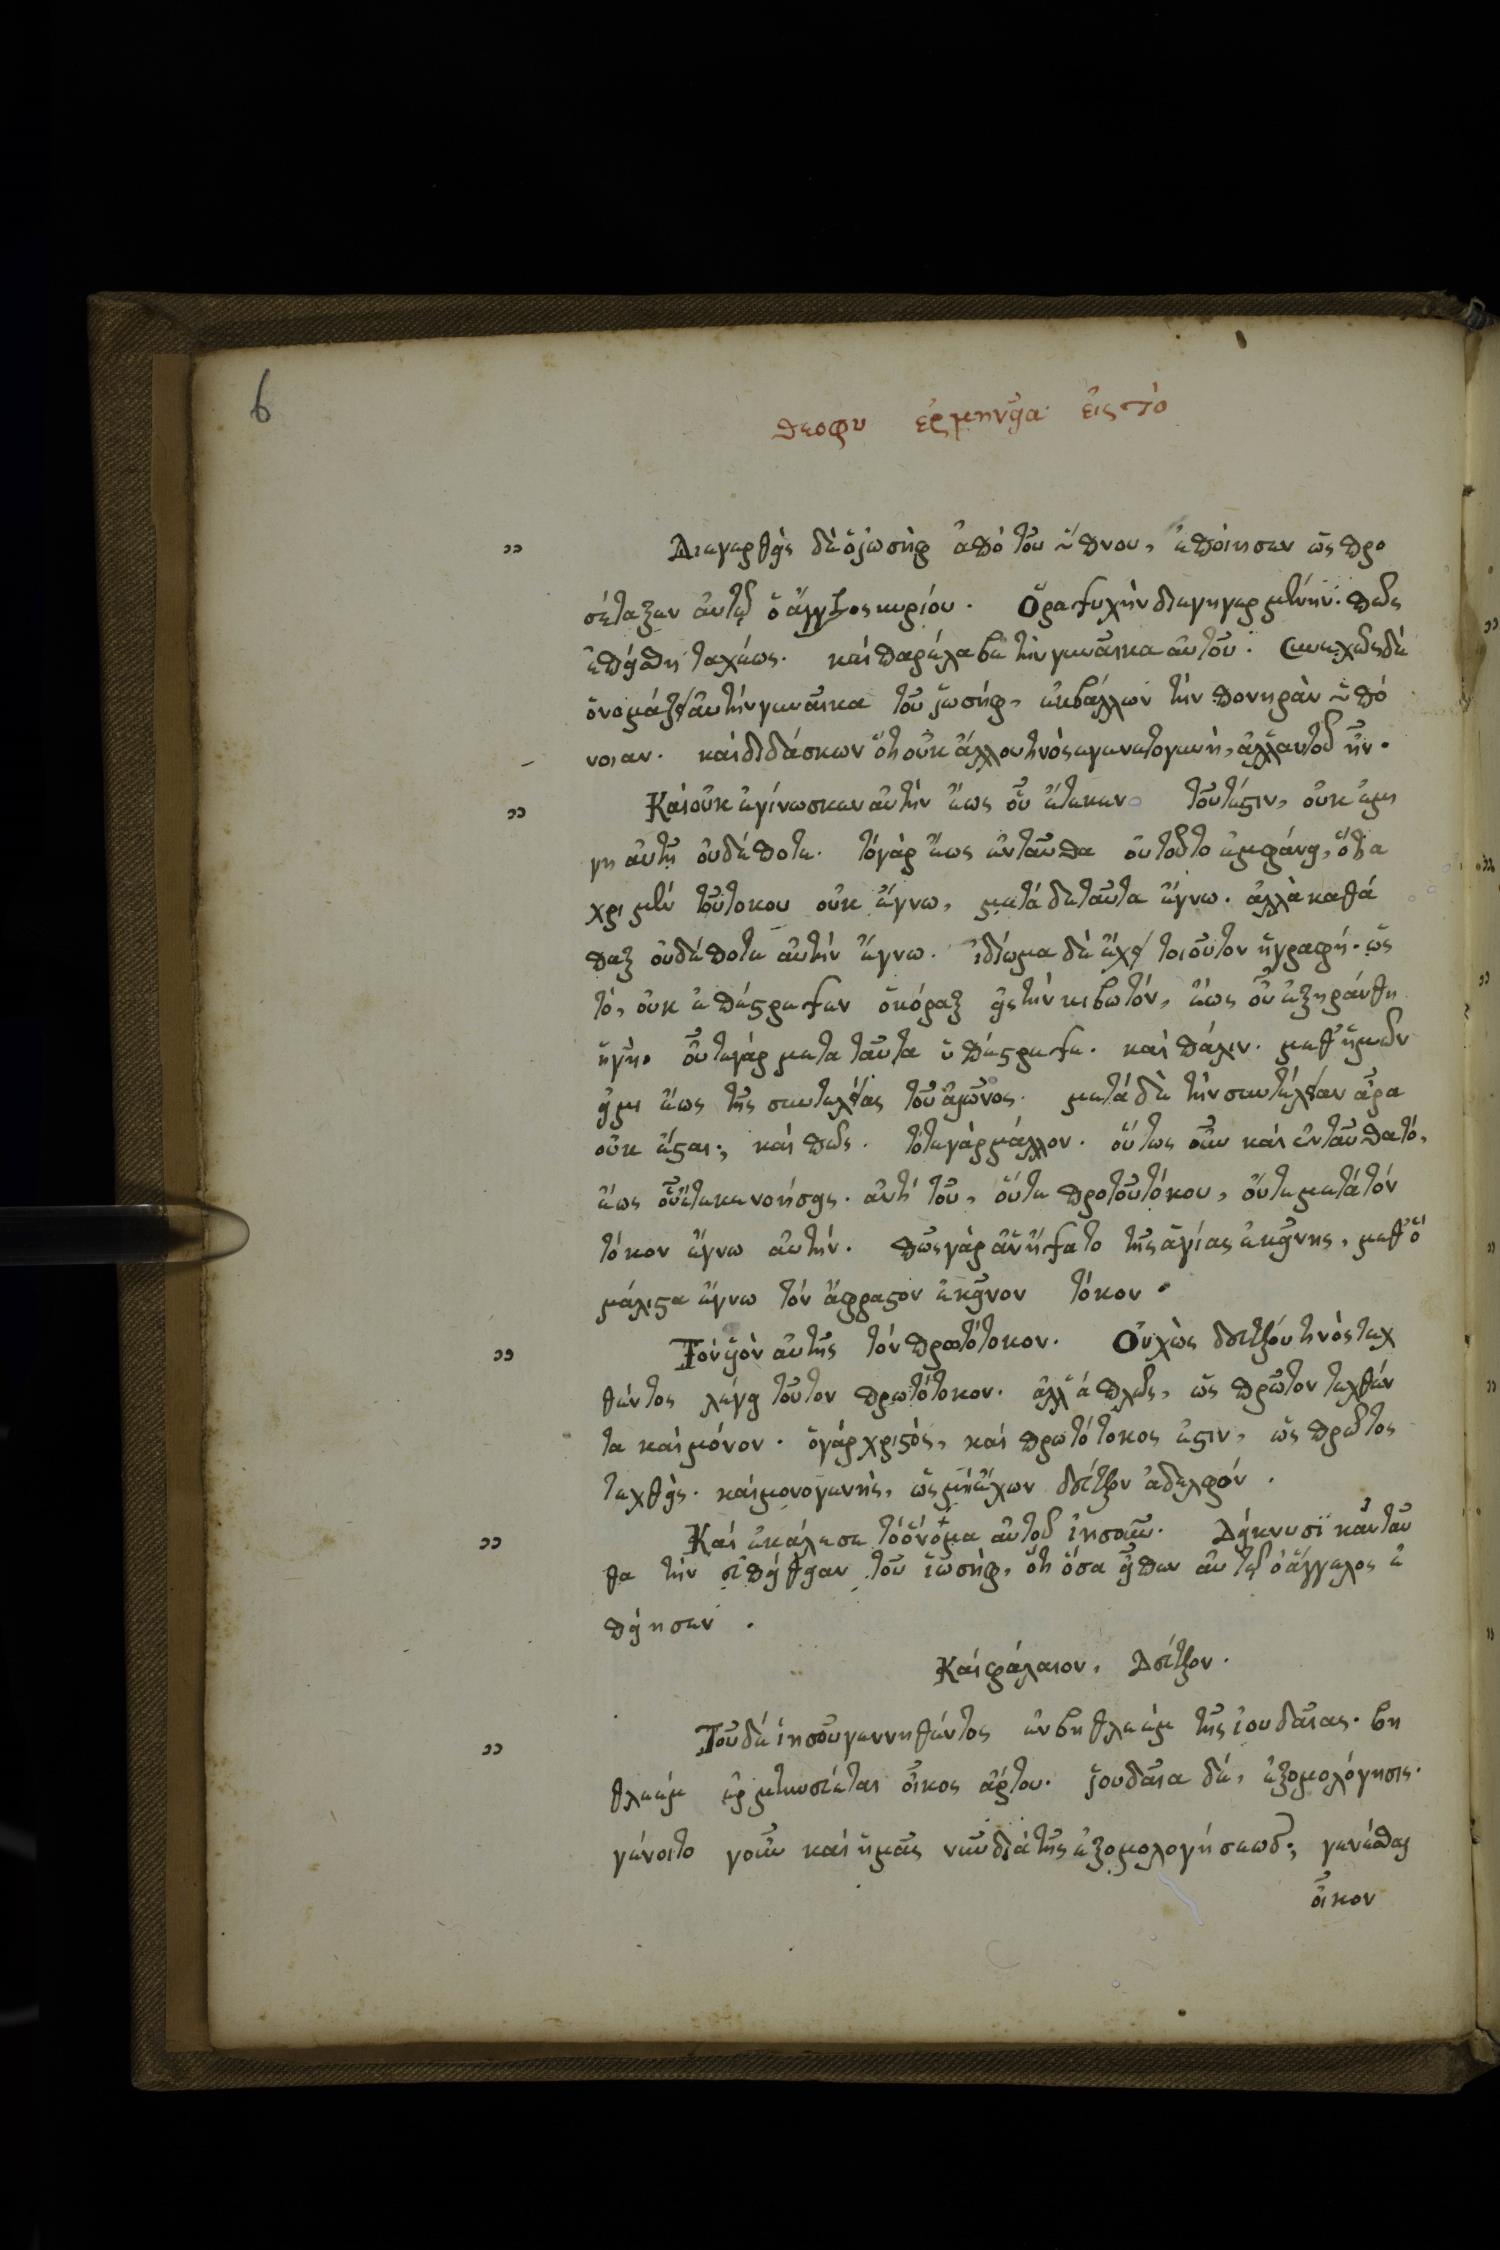 6
θεοφυ ἑρμηνεία εἰς τὸ
Διεγερθεὶς δὲ ὁ ἰωσὴφ ἀπὸ τοῦ ὕπνου, ἐποίησεν ὡς προ
σέταξεν αὐτῷ ὁ ἄγγελος κυρίου. Ὅρα ψυχὴν διεγηγερμένην. πῶς
ἐπείσθη ταχέως. καὶ παρέλαβε τὴν γυναῖκα αὐτοῦ. Συνεχῶς δὲ
ὀνομάζει αὐτὴν γυναῖκα τοῦ ἰωσήφ, ἐκβάλλων τὴν πονηρὰν ὑπό
νοιαν. καὶ διδάσκων ὅτι οὐκ ἄλλου τινὸς ἐγένετο γυνή, ἀλλ' αὐτοῦ ἦν.
Καὶ οὐκ ἐγίνωσκεν αὐτὴν ἕως οὗ ἔτεκεν. τουτέστιν, οὐκ ἐμί
γη αὐτῇ οὐδέποτε. τὸ γὰρ ἕως ἐνταῦθα οὐ τοῦτο ἐμφάνει, ὅτι ἄ
χρι μὲν τοῦ τοκου οὐκ ἔγνω, μετὰ δὲ ταῦτα ἔγνω. ἀλλὰ καθά
παξ οὐδέποτε αὐτὴν ἔγνω. ἰδίωμα δὲ ἔχει τοιοῦτον ἡ γραφή. ὡς
τό, οὐκ ἐπέστρεψεν ὁ κόραξ εἰς τὴν κιβωτόν, ἕως οὗ ἐξηράνθη
ἡ γῆ. οὔτε γὰρ μετα ταῦτα ὑπέστρεψε. καὶ πάλιν. μεθ' ἡμῶν
εἰμι ἕως τῆς συντελείας τοῦ αἰῶνος. μετὰ δὲ τὴν συντέλειαν ἆρα
οὐκ ἔσται; καὶ πῶς. τότε γὰρ μάλλον. οὕτως οὖν καὶ ἐνταῦθα τό,
ἕως οὗ ἔτεκε νοήσεις. ἀντὶ τοῦ, οὔτε προ τοῦ τόκου, οὔτε μετὰ τὸν
τόκον ἔγνω αὐτήν. πῶς γὰρ ἂν ἥψατο τῆς ἁγίας ἐκείνης, μεθ' ὃ
μάλιστα ἔγνω τὸν ἄφραστον ἐκεῖνον τόκον.
Τὸν υἱὸν αὐτῆς τὸν πρωτότοκον. Οὐχ ὡς δευτέρου τινὸς τεχ
θέντος λέγει τοῦτον πρωτότοκον. ἀλλ' ἁπλῶς, ὡς πρῶτον τεχθέν
τα καὶ μόνον. ὁ γὰρ χριστός, καὶ πρωτότοκος ἐστιν, ὡς πρῶτος
τεχθείς. καὶ μονογενής, ὡς μὴ ἔχων δεύτερον ἀδελφόν.
Καὶ ἐκάλεσε τὸ ὄνομα αὐτοῦ ἰησοῦν. Δείκνυσι κἀνταῦ
θα τὴν εὐπείθειαν τοῦ ἰωσήφ, ὅτι ὅσα εἶπεν αὐτῷ ὁ ἄγγελος ἐ
ποίησεν.
Καίφάλαιον, Δεύτερον.
Τοῦ δὲ ἰησοῦ γεννηθέντος ἐν βηθλεὲμ τῆς ἰουδαίας. βη
θλεὲμ ἑρμηνεύεται οἶκος ἄρτου. ἰουδαία δὲ, ἐξομολόγησις.
γένοιτο γοῦν καὶ ἡμᾶς νῦν διὰ τῆς ἐξομολογήσεως; γενέσθαι
οἶκον